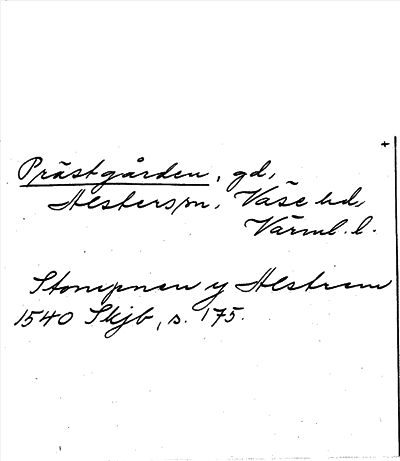 +
Prästgården, gd,
Alsters sn, Väse hd,
Värml. l.
Stompnen y Alstrem
1540 Skjb, s. 175.